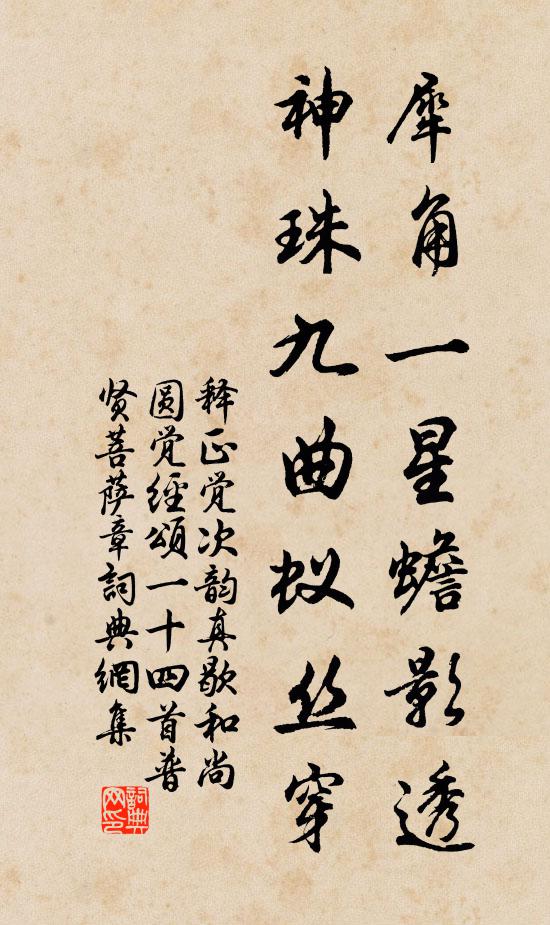 犀角一星蟾影透
神珠九曲蚁丝穿
释正觉次韵真歇和尚
圆觉经颂一十四首普
贤菩萨章詞典網集
詞典
网印